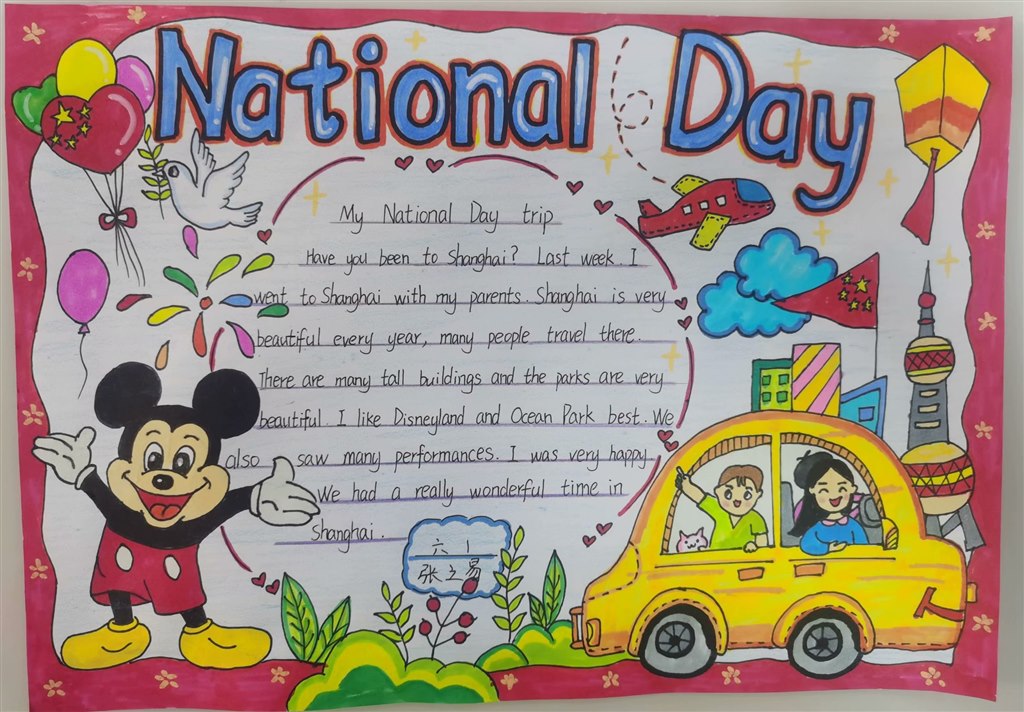 National Day
My National Day trip
Have you been to Shanghai? Last week. I
went to Shanghai with my parents. Shanghai is very
beautiful every year, many people travel there.
There are many tall buildings and the parks are very
beautiful. I like Disneyland and Ocean Park best. We
also saw many performances. I was very happy.
We had a really wonderful time in
Shanghai.
六1
张之易